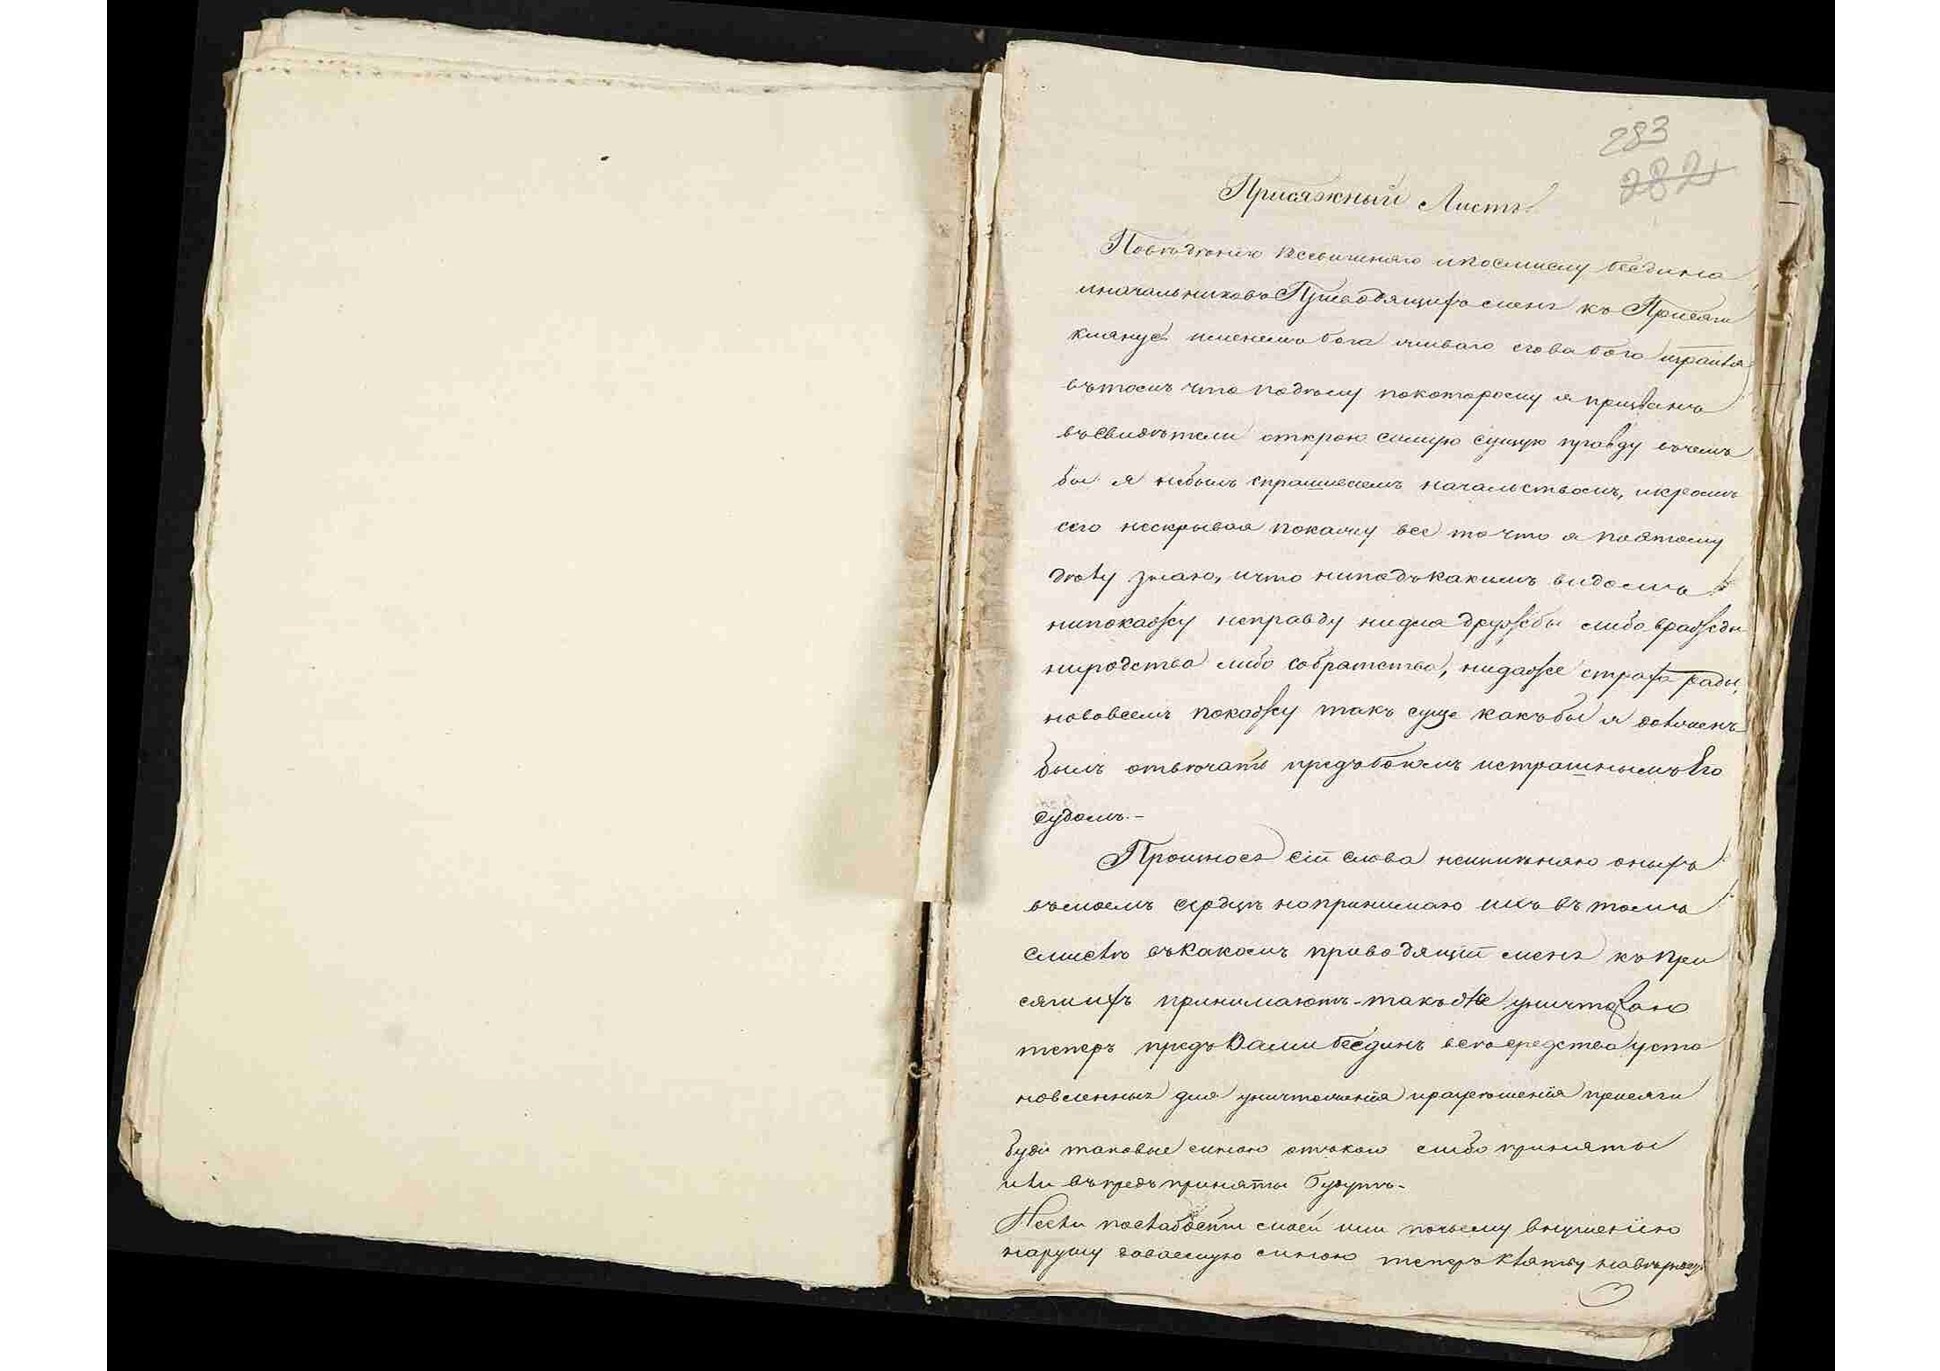 283
282
Присяжный Листъ
Повѣденію Всевышняго и посмыслу беѣдина
иначальниковъ Приводящихъ меня къ Присяги
клянусь именемъ бога живаго слова бога израиля
въ томъ что подѣлу покоторому я призванъ
въ свидѣтели открою самую сущую правду въчемъ
бы я небылъ спрашиваемъ начальствомъ, икромѣ
сего нескрывая покажу все то что я поэтому
дѣлу знаю, ичто ниподъкакимъ видомъ
нипокажу неправду нидля дружбы либо вражды
ниродства либо собратства, нидаже страха ради,
нововсемъ покажу такъ суще какъбы я долженъ
былъ отвѣчать предъбогомъ истрашнымъ Его
судомъ.-
Произнося сіи слова неизменяю оныхъ
въмоемъ сердцѣ нопринимаю ихъ въ томъ
смыслѣ въкакомъ приводящіи меня къ при
сягиихъ принимаютъ-такъже уничтожаю
теперъ предъ Вами беѣдинъ всѣ средства уста
новленныя для уничтоженія иразрешенія присяги
буде таковые мною отъкого либо приняты
или въпредь приняты будутъ-
Несли послабости моей или почьему внушенію
нарушу даваемую мною теперь клятву навѣрную